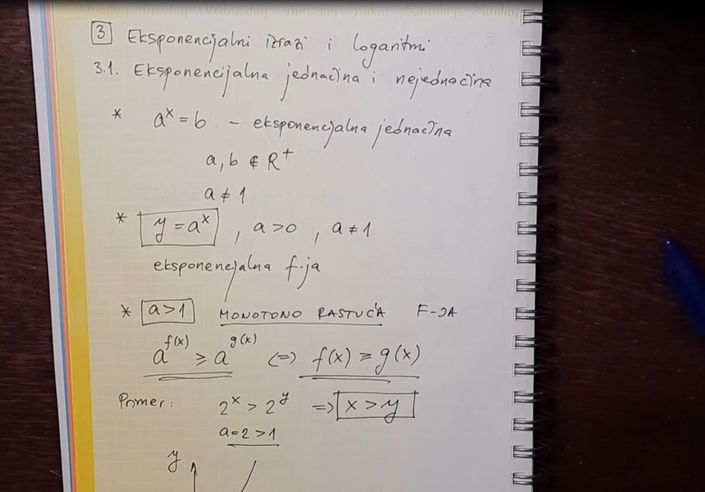 Tuesday Wednesday Thursday Friday Saturday Sunday
3 Eksponencijalni izrazi i logaritmi
3.1. Eksponencijalna jednačina i nejednačina
* aˣ = b – eksponencijalna jednačina
a, b ∈ R⁺
a ≠ 1
* y = aˣ , a > 0 , a ≠ 1
eksponencijalna f-ja
* a > 1 MONOTONO RASTUĆA F-JA
a^f(x) ≥ a^g(x) <=> f(x) ≥ g(x)
Primer: 2ˣ > 2ʸ => x > y
a = 2 > 1
y